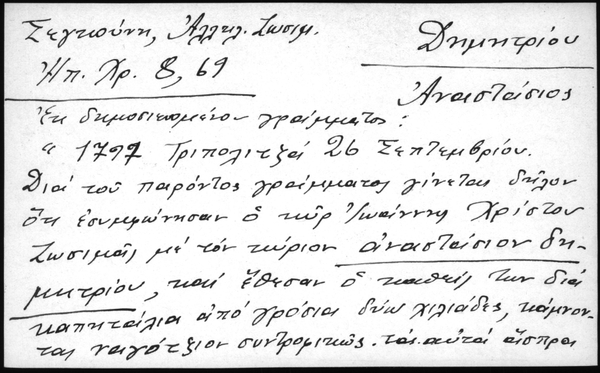 Σεγκούνη, Ἀλληλ. Ζωσιμ.
Δημητρίου
Ἠπ. Χρ. 8, 69
Ἀναστάσιος
Ἐκ δημοσιευομένου γράμματος:
" 1797 Τριπολιτζᾷ 26 Σεπτεμβρίου.
Διά τοῦ παρόντος γράμματος γίνεται δῆλον
ὅτι ἐσυμφώνησαν ὁ κύρ Ἰωάννης Χρίστου
Ζωσιμᾶς μέ τόν κύριον ἀναστάσιον δη-
μητρίου, καί ἔθεσαν ὁ καθείς των διά
καπητάλια ἀπό γρόσια δύω χιλιάδες, κάμνον-
τας συντροφικῶς. τά αὐτά ἄσπρα